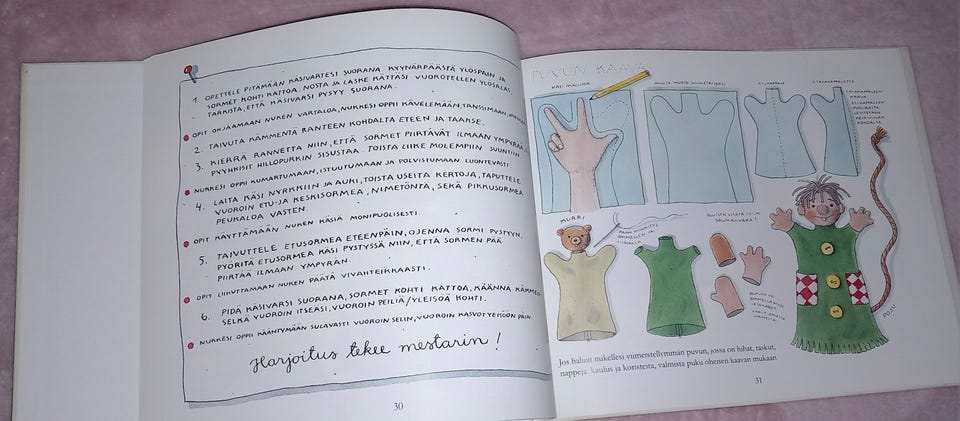 1. OPETTELE PITÄMÄÄN KÄSIVARTESI SUORANA KYYNÄRPÄÄSTÄ YLÖSPÄIN JA
SORMET KOHTI KATTOA. NOSTA JA LASKE KÄTTÄSI VUOROTELLEN YLÖSALAS,
TARKISTA, ETTÄ KÄSIVARSI PYSYY SUORANA.
OPIT OHJAAMAAN NUKEN VARTALOA, NUKKESI OPPII KÄVELEMÄÄN, TANSSIMAAN,
2. TAIVUTA KÄMMENTÄ RANTEEN KOHDALTA ETEEN JA TAAKSE.
3. KIERRÄ RANNETTA NIIN, ETTÄ SORMET PIIRTÄVÄT ILMAAN YMPYRÄÄ
PYYHKISIT HILLOPURKIN SISUSTAA. TOISTA LIIKE MOLEMPIIN SUUNTIIN
NUKKESI OPPII KUMARTUMAAN, ISTUUTUMAAN JA POLVISTUMAAN LUONTEVASTI.
4. LAITA KÄSI NYRKKIIN JA AUKI, TOISTA USEITA KERTOJA, TAPUTTELE
VUOROIN ETU- JA KESKISORMEA, NIMETÖNTÄ, SEKÄ PIKKUSORMEA
PEUKALOA VASTEN.
OPIT KÄYTTÄMÄÄN NUKEN KÄSIÄ MONIPUOLISESTI.
5. TAIVUTTELE ETUSORMEA ETEENPÄIN, OJENNA SORMI PYSTYYN,
PYÖRITÄ ETUSORMEA KÄSI PYSTYSSÄ NIIN, ETTÄ SORMEN PÄÄ
PIIRTÄÄ ILMAAN YMPYRÄN.
OPIT LIIKUTTAMAAN NUKEN PÄÄTÄ VIVAHTEIKKAASTI.
6. PIDÄ KÄSIVARSI SUORANA, SORMET KOHTI KATTOA, KÄÄNNÄ KÄMMEN
SELKÄ VUOROIN ITSEÄSI, VUOROIN PEILIÄ/YLEISÖÄ KOHTI.
NUKKESI OPPII KÄÄNTYMÄÄN SULAVASTI VUOROIN SELIN, VUOROIN KASVOT YLEISÖÖN PÄIN
Harjoitus tekee mestarin!
30
PUVUN KAAVA
KÄSI MALLINA
MUISTA MUOTO
ETUKAPPALE
MURRI
MUISTA LISÄTÄ 1 CM
SAUMANVARAA!
POJU
Jos haluat nukellesi viimeistellymmän puvun, jossa on hihat, taskut,
nappeja, kaulus ja koristeita, valmista puku oheisen kaavan mukaan
31